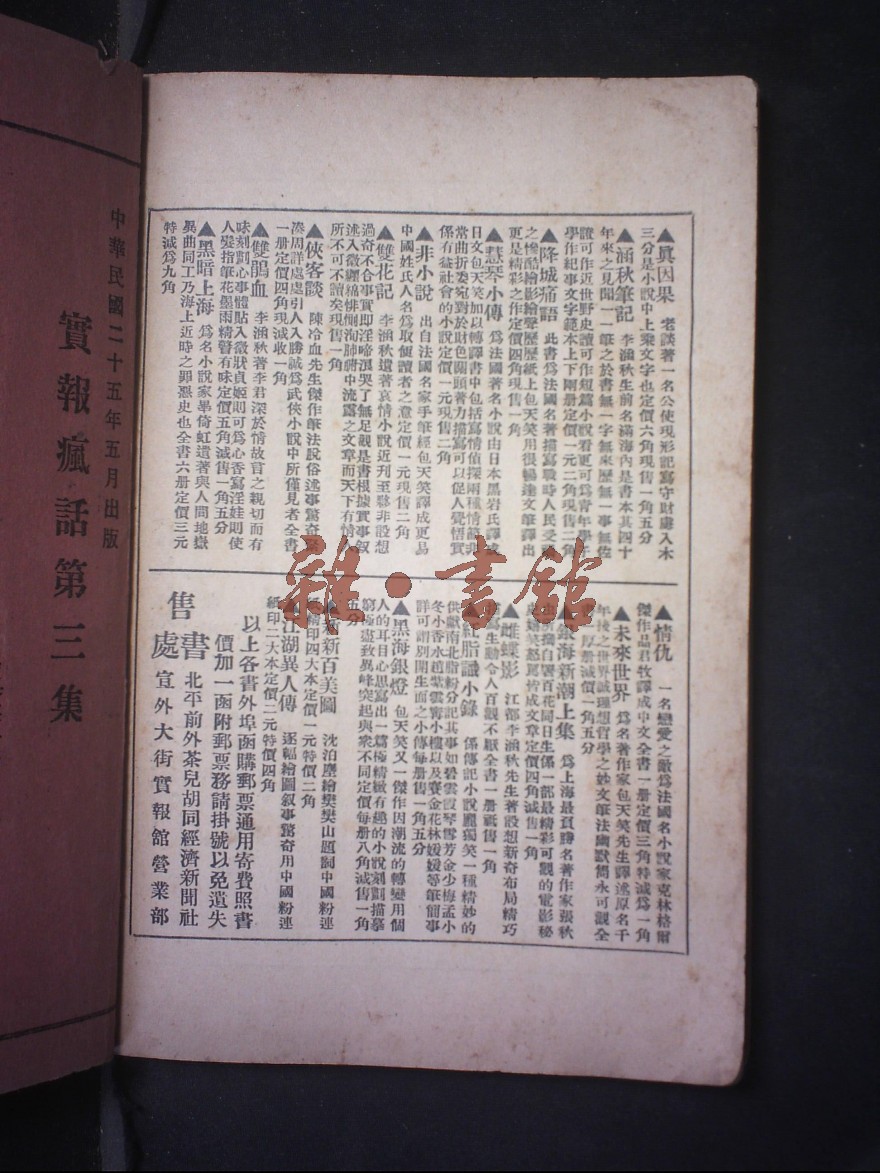 ▲眞因果　老談著一名公使現形記寫守財虜入木
三分是小說中上乘文字也定價六角現售一角五分
▲涵秋筆記　李涵秋生前名滿海內是書本其四十
年來之見聞一一筆之於書無一字無來歷無一事無佐
證可作近世野史讀可作短篇小說看更可爲青年學子
學作紀事文字範本上下兩册定價一元二角現售二角
▲降城痛語　此書爲法國名著描寫戰時人民受禍
之慘酷繪影繪聲歷歷紙上包天笑用很暢達文筆譯出
更是精彩之作定價四角現售一角
▲慧琴小傳　爲法國著名小說由日本黑岩氏譯成
日文包天笑加以轉譯書中包括寫情偵探兩種情節非
常曲折委宛對於財色關頭著力描寫可以促人覺悟實
係有益社會的小說定價一元現售二角
▲非小說　出自法國名家手筆經包天笑譯成更易
中國姓氏人名爲取便讀者之意定價一元現售二角
▲雙花記　李涵秋遺著哀情小說近刊至夥非設想
過奇不合事實即淫啼浪哭了無足觀是書根據實事叙
述入微纏綿悱惻洵肺腑中流露之文章而天下有情人
所不可不讀矣現售一角
▲俠客談　陳冷血先生傑作筆法脫俗述事驚奇緊
湊周詳處處引人入勝誠爲武俠小說中所僅見者全書
一册定價四角現減收一角
▲雙鵑血　李涵秋著李君深於情故言之親切而有
味刻劃心事體貼入微狀貞姬則可爲心香寫淫娃則使
人髮指筆花墨雨精警有味定價五角減售一角五分
▲黑暗上海　爲名小說家畢倚虹遺著與人間地獄
異曲同工乃海上近時之罪惡史也全書六册定價三元
特減爲九角
▲情仇　一名戀愛之敵爲法國名小說家克林格爾
傑作品君牧譯成中文全書一册定價三角特減爲一角
▲未來世界　爲名著作家包天笑先生譯述原名千
年後之世界誠理想哲學之妙文筆法幽默雋永可觀全
厚册減價一角五分
海新潮上集　爲上海最頁勝名著作家張秋
獨自署百花同日生係一部最精彩可觀的電影秘
笑怒罵皆成文章定價四角減售一角
▲雌蝶影　江都李涵秋先生著設想新奇布局精巧
寫生動令人百觀不厭全書一册祇售一角
紅脂識小錄　係傳記小說龐獨笑一種精妙的
供獻南北脂粉分記其事如碧雲霞琴雪芳金少梅孟小
冬小香水趙紫雲窗小樓以及賽金花林媛媛等筆簡事
詳可謂別開生面之小傳每册售一角五分
▲黑海銀燈　包天笑又一傑作因潮流的轉變用個
人的耳目心思寫出一篇極精緻有趣的小說刻劃描摹
窮極盡致異峰突起與衆不同定價每册八角減售一角
五分
新新百美圖　沈泊塵繪樊樊山題詞中國粉連
紙精印四大本定價一元特價二角
江湖異人傳　逐幅繪圖叙事驚奇用中國粉連
紙印二大本定價二元特價四角
以上各書外埠函購郵票通用寄費照書
價加一函附郵票務請掛號以免遺失
售書處
北平前外茶兒胡同經濟新聞社
宣外大街實報館營業部
中華民國二十五年五月出版
實報瘋話第三集
雜·書館